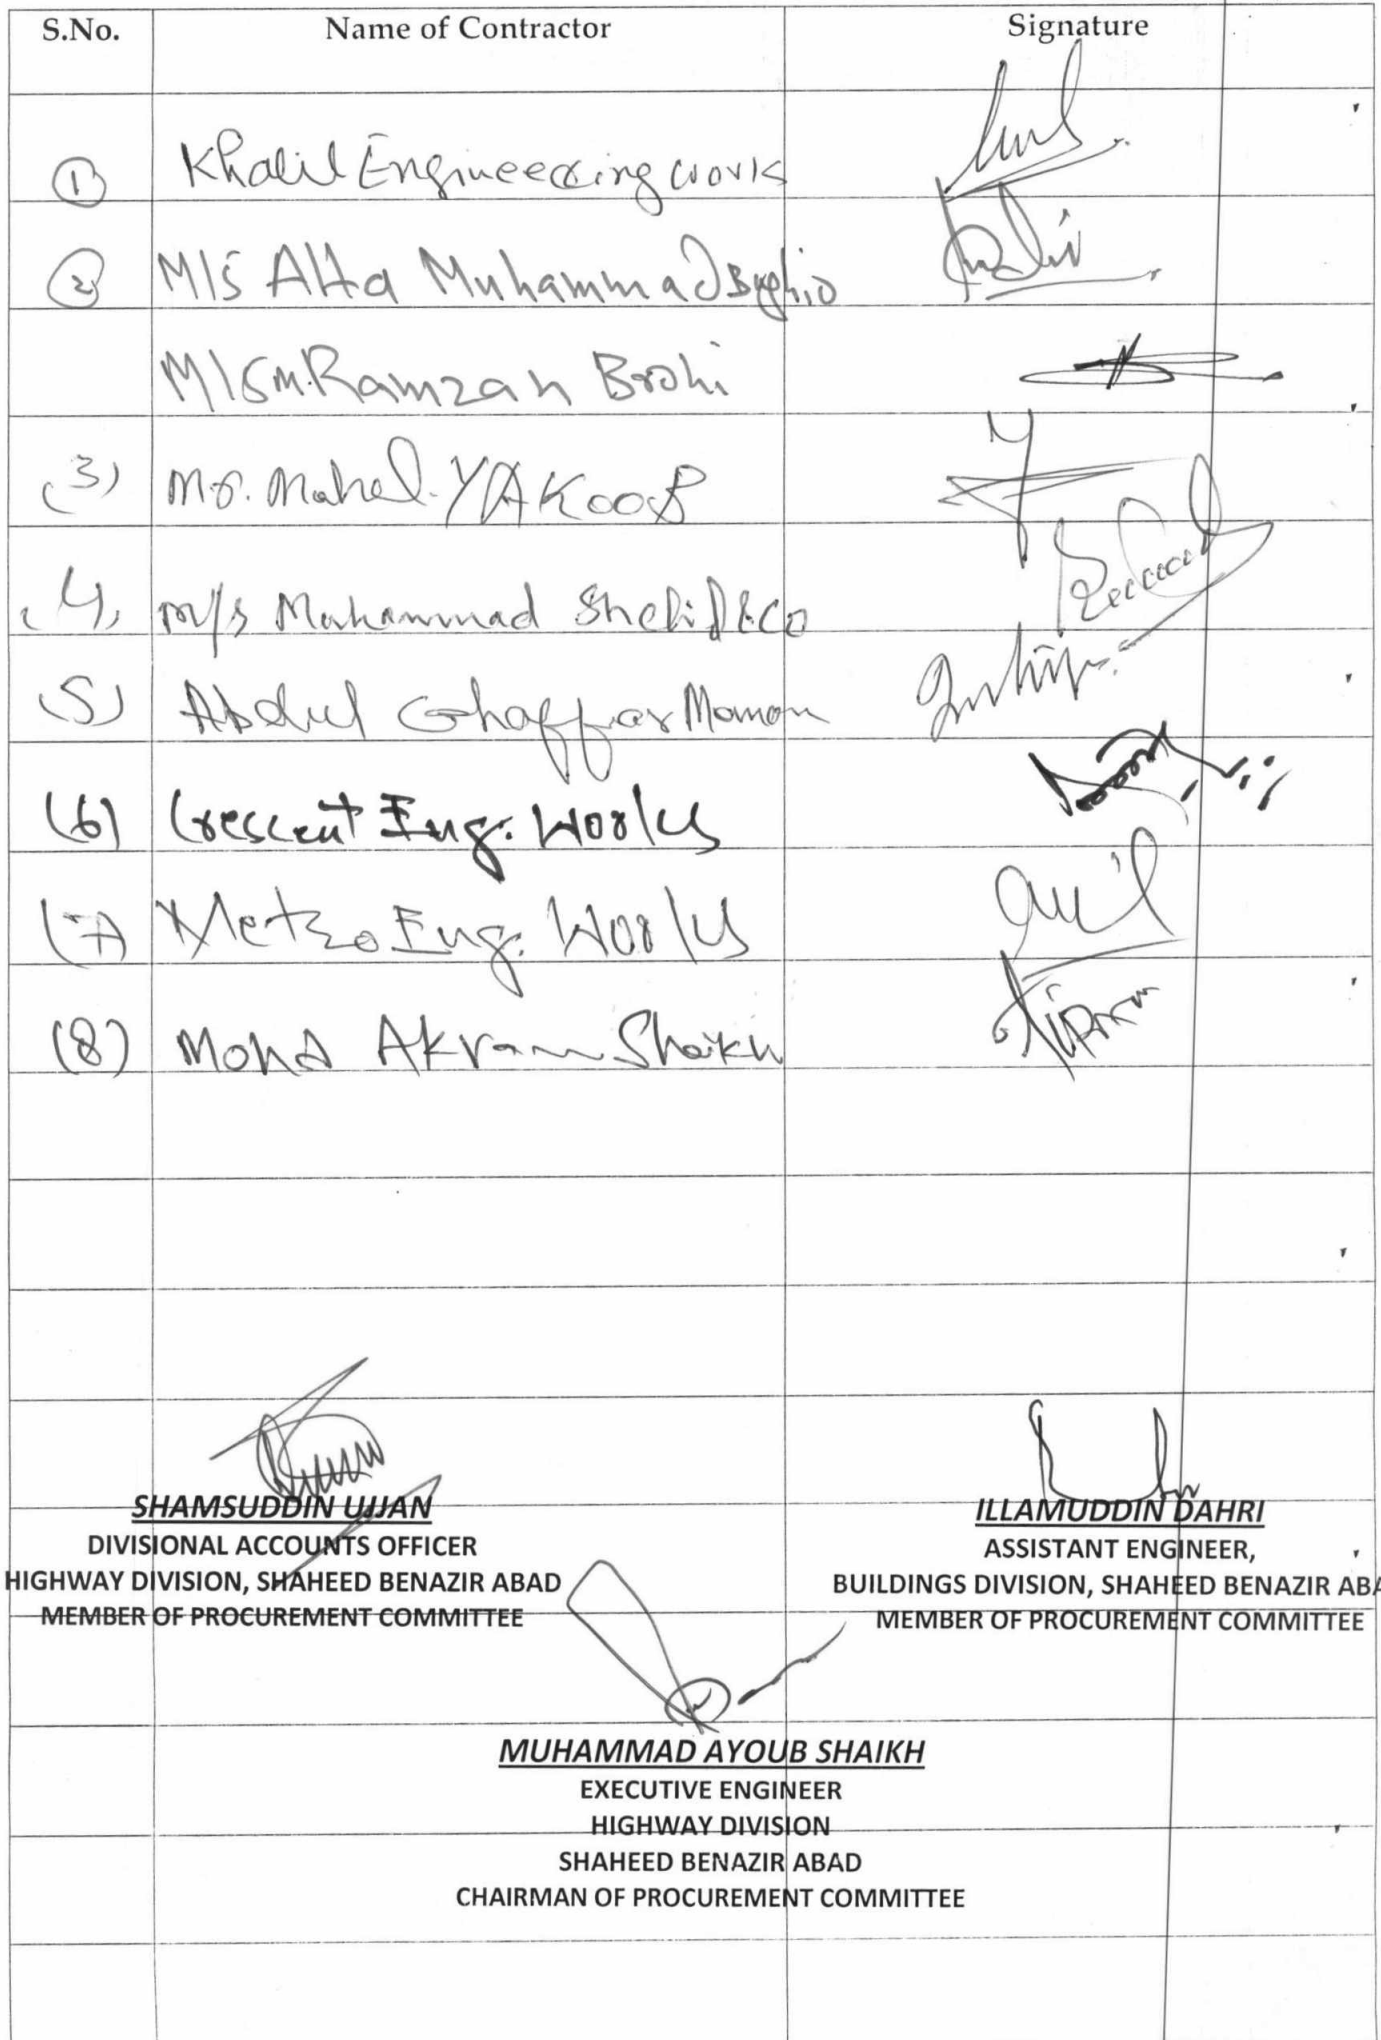 S.No. Name of Contractor Signature
1 Khalil Engineering work
2 M/S Atta Muhammad Bughio
M/S M. Ramzan Brohi
(3) Mr. Mohd. YAKOOB
(4) M/s Muhammad & CO
(5) Abdul Ghaffar Memon
(6) Crescent Eng. Works
(7) Metro Eng. Works
(8) Mohd Akram Shaikh
SHAMSUDDIN UJJAN
DIVISIONAL ACCOUNTS OFFICER
HIGHWAY DIVISION, SHAHEED BENAZIR ABAD
MEMBER OF PROCUREMENT COMMITTEE
ILLAMUDDIN DAHRI
ASSISTANT ENGINEER,
BUILDINGS DIVISION, SHAHEED BENAZIR ABA
MEMBER OF PROCUREMENT COMMITTEE
MUHAMMAD AYOUB SHAIKH
EXECUTIVE ENGINEER
HIGHWAY DIVISION
SHAHEED BENAZIR ABAD
CHAIRMAN OF PROCUREMENT COMMITTEE